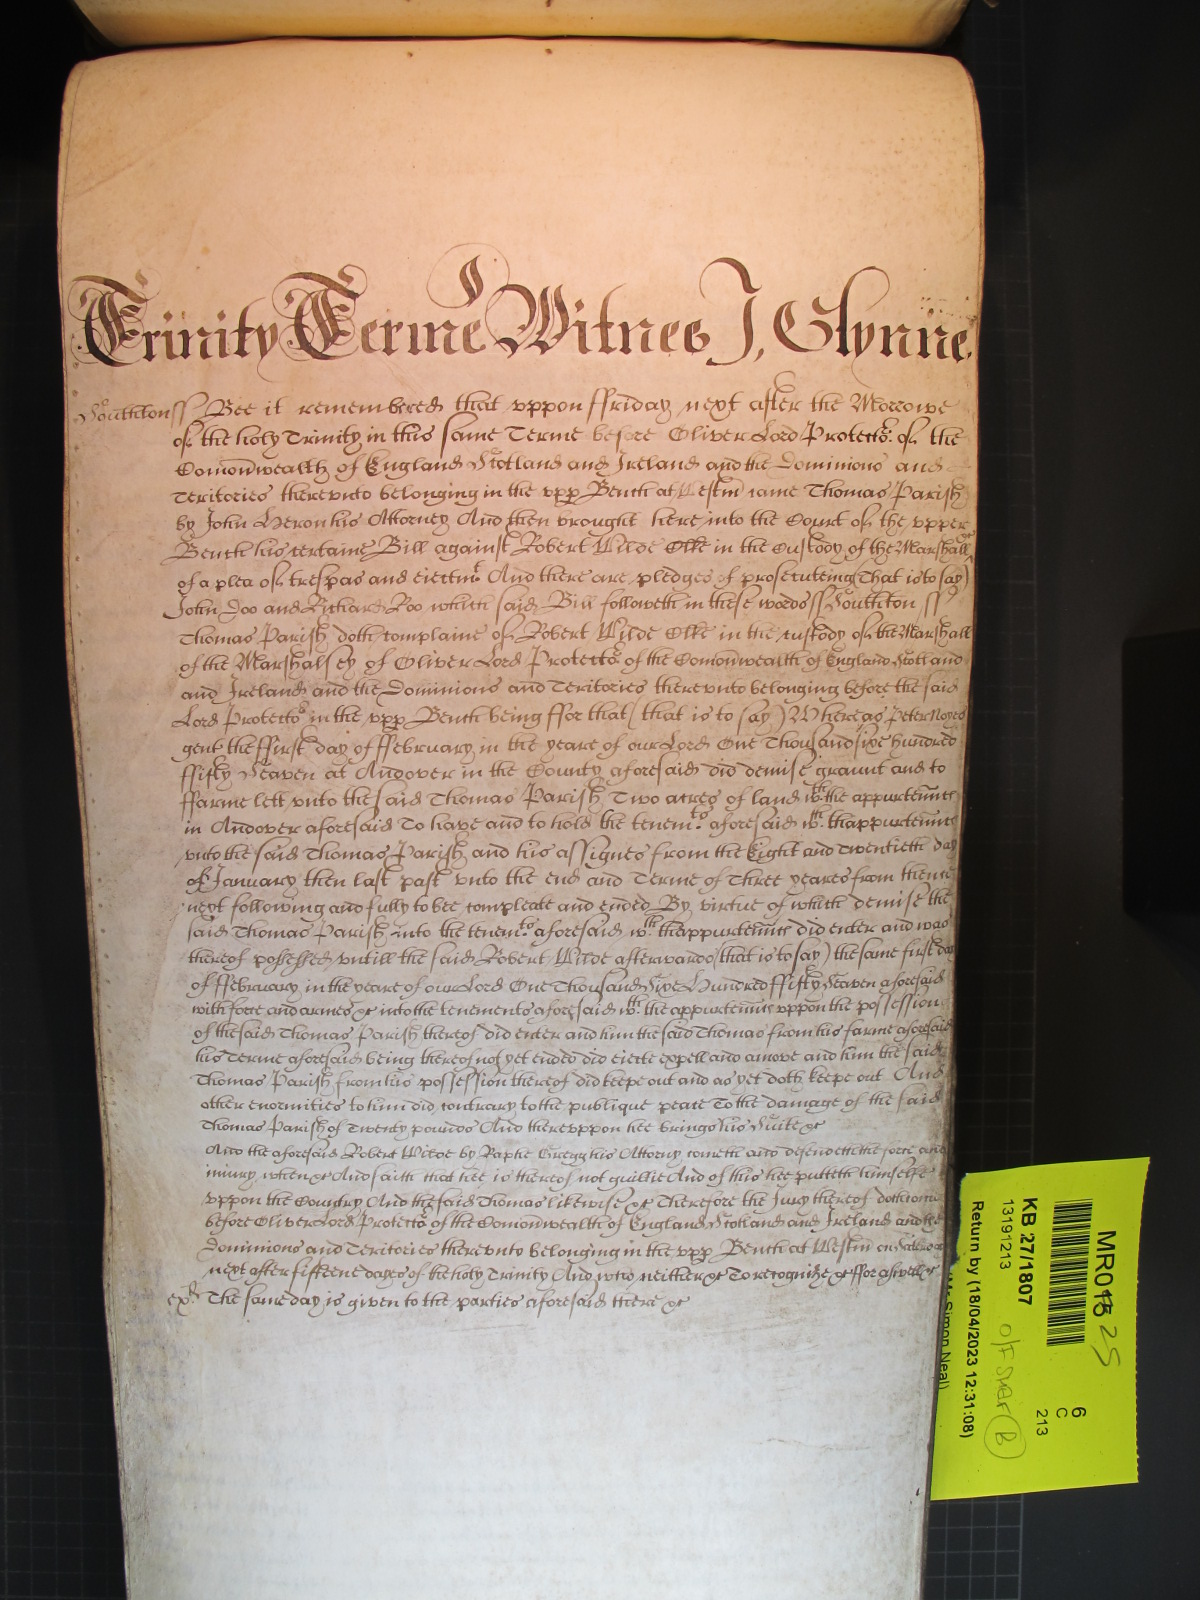 Trinity Terme Witnes J, Glynne.
Southton ss Bee it remembered that vppon ffriday next after the Morrowe
of the holy Trinity in this same Terme before Oliver Lord Protector of the
Comonwealth of England Scotland and Ireland and the Dominions and
Teritories therevnto belonging in the vpp Bench at Westm came Thomas Parish
by John Heron his Attorney And then brought here into the Court of the vpper
Bench his certaine Bill against Robert Wilde in the Custody of the Marshall &c
of a plea of trespas and eiectmt And there are pledges of prosecuteing (That is to say)
John Doo and Richard Roo which said Bill followeth in these words ss Southton ss
Thomas Parish doth complaine of Robert Wilde in the custody of the Marshall
of the Marshalsey of Oliver Lord Protector of the Comonwealth of England Scotland
and Ireland and the Dominions and Teritories therevnto belonging before the said
Lord Protector in the vpp Bench being ffor that (that is to say) Whereas Peter Noyes
gent the ffirst day of ffebruary in the yeare of our Lord One Thousand sixe hundred
ffifty Seaven at Andover in the County aforesaid did demise graunt and to
ffarme lett vnto the said Thomas Parish Two acres of land wth the appurtennces
in Andover aforesaid To have and to hold the tenemts aforesaid wth thappurtennces
vnto the said Thomas Parish and his assignes from the Eight and Twentieth day
of January then last past vnto the end and Terme of Three yeares from thence
next following and fully to bee compleate and ended By virtue of which demise the
said Thomas Parish into the tenemts aforesaid wth thappurtennces did enter and was
thereof possessed vntill the said Robert Wilde afterwards (that is to say) the same first day
of ffebruary in the yeare of our Lord One Thousand Sixe Hundred ffifty Seaven aforesaid
with force and armes &c into the tenements aforesaid wth the appurtennces vppon the possession
of the said Thomas Parish thereof did enter and him the said Thomas from his farme aforesaid
his Terme aforesaid being thereof not yet ended did eiecte expell and amove and him the said
Thomas Parish from his possession thereof did keepe out and as yet doth keepe out And
other enormities to him did contrary to the publique peace To the damage of the said
Thomas Parish of Twenty pounds And therevppon hee brings his Suite &c
And the aforesaid Robert Wilde by Raphe Gregg his Attorny cometh and defendeth the force and
iniury when &c And saith that hee is thereof not guiltie And of this hee putteth himselfe
vppon the Country And the said Thomas likewise &c Therefore the Jury thereof doth come
before Oliver Lord Protector of the Comonwealth of England Scotland and Ireland and the
Dominions and Teritories therevnto belonging in the vpp Bench at Westm on
next after fifteene dayes of the holy Trinity And who neither &c To recognize &c ffor aswell &c
exr The same day is given to the parties aforesaid there &c
MR01 25
6
C
213
KB 27/1807
13191213
O/F SMAR (B)
Return by (18/04/2023 12:31:08)
(Mr Simon Neal)